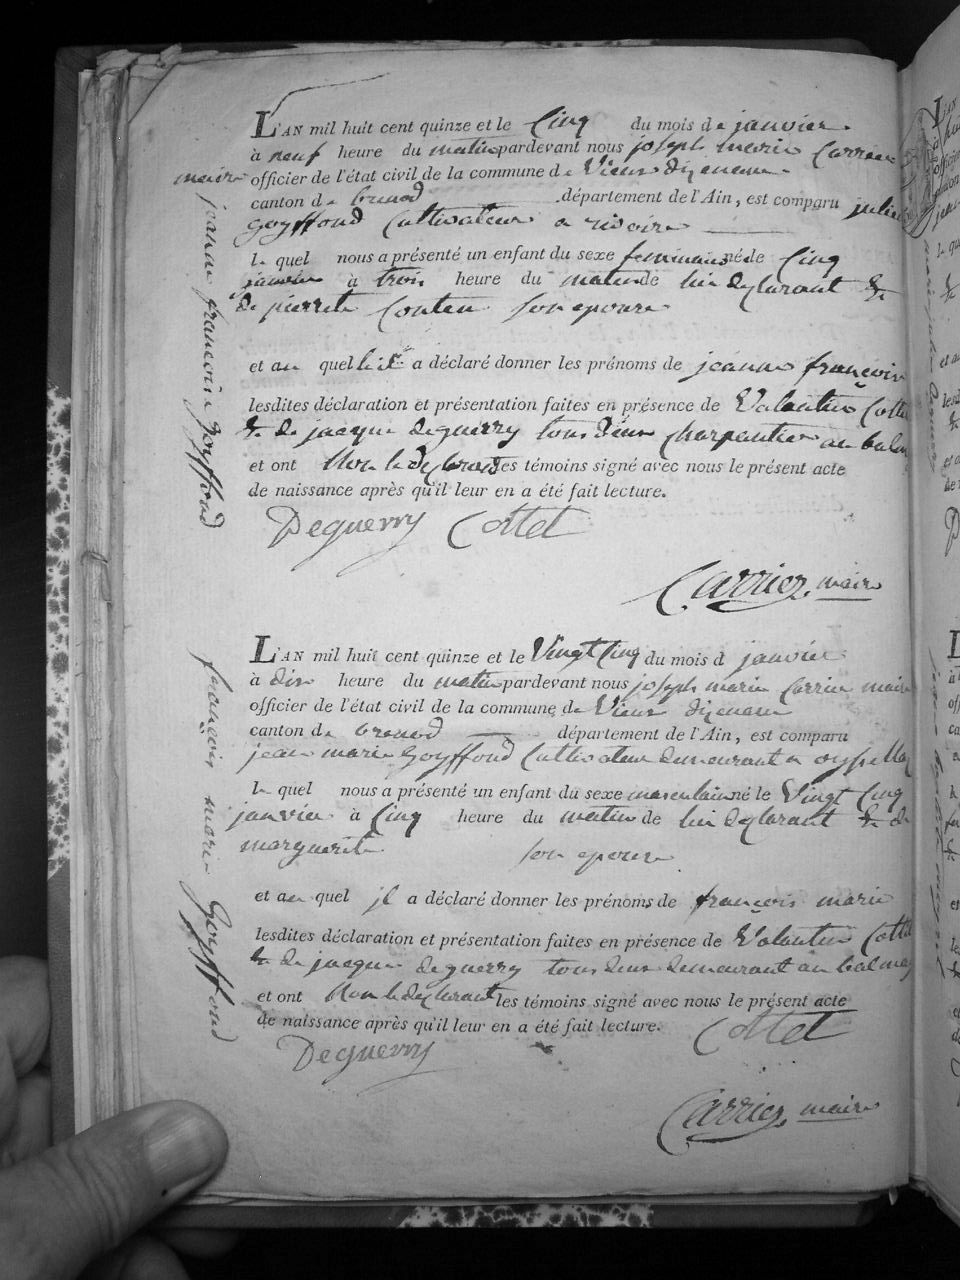 L'AN mil huit cent quinze et le Cinq du mois de janvier
à neuf heure du matin pardevant nous joseph marie Carrier
maire officier de l'état civil de la commune de Vieux dizenave
canton de brenod département de l'Ain, est comparu julien
goyffond Cultivateur a rivoire
le quel nous a présenté un enfant du sexe feminain né le Cinq
janvier à trois heure du matin de lui declarant &
de pierrete Conten son epouse
et au quel led. a déclaré donner les prénoms de jeanne françoise
lesdites déclaration et présentation faites en présence de Valentin Cottet
& de jacque deguerry tous deux charpentier au balmay
et ont Non le declarant les témoins signé avec nous le présent acte
de naissance après qu'il leur en a été fait lecture.
Deguerry Cottet
Carrier maire
jeanne francoise goyffond
L'AN mil huit cent quinze et le Vingt Cinq du mois d janvier
à dix heure du matin pardevant nous joseph marie Carrier maire
officier de l'état civil de la commune de Vieux dizenave
canton de brenod département de l'Ain, est comparu
jean marie goyffond Cultivateur demeurant a oysellaz
le quel nous a présenté un enfant du sexe masculain né le Vingt Cinq
janvier à Cinq heure du matin de lui declarant & de
marguerite son epouse
et au quel il a déclaré donner les prénoms de françois marie
lesdites déclaration et présentation faites en présence de Valentin Cottet
& de jacque deguerry tous deux demeurant au balmay
et ont Non le declarant les témoins signé avec nous le présent acte
de naissance après qu'il leur en a été fait lecture.
Cottet
Deguerry
Carrier maire
françois marie Goyffond